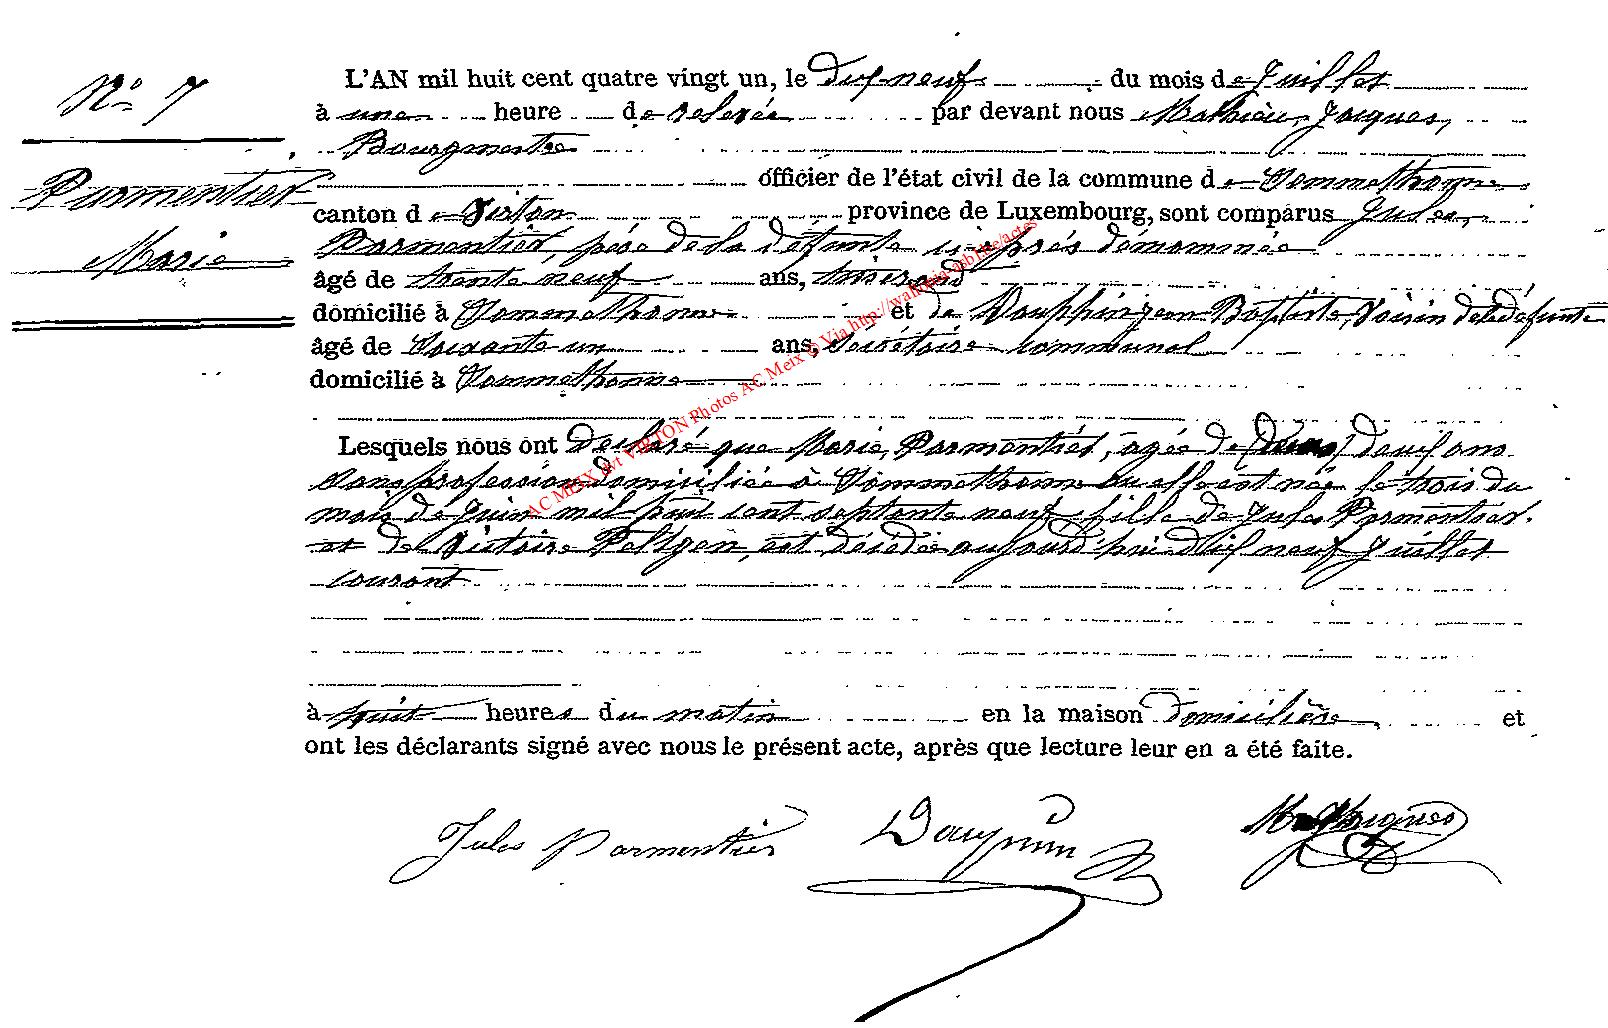 N° 7
Parmentier
Marie
L'AN mil huit cent quatre vingt un, le Dix-neuf du mois de Juillet
à une heure de relevée par devant nous Mathieu, Jacques,
Bourgmestre
officier de l'état civil de la commune de Sommethonne
canton de Virton province de Luxembourg, sont comparus Jules,
Parmentier, père de la défunte ci-près dénommée
âgé de trente neuf ans, tisserand
domicilié à Sommethonne et de Dauphin Jean Baptiste, Voisin de la défunte
âgé de Soixante un ans, Secrétaire communal
domicilié à Sommethonne
Lesquels nous ont Déclaré que Marie, Parmentier, agée de deux ans
Sans profession domiciliée à Sommethonne ou elle est née le trois du
mois de Juin mil huit cent septante neuf fille de Jules Parmentier.
et de Victoire Peltgen, est décédée aujourd'hui dix neuf Juillet
courant
à huit heures du matin en la maison Domicilière et
ont les déclarants signé avec nous le présent acte, après que lecture leur en a été faite.
Jules Parmentier Dauphin M Jacques
AC MEIX Art VIRTON Photos AC Meix © Via http://wallonia-asbl.be/actes